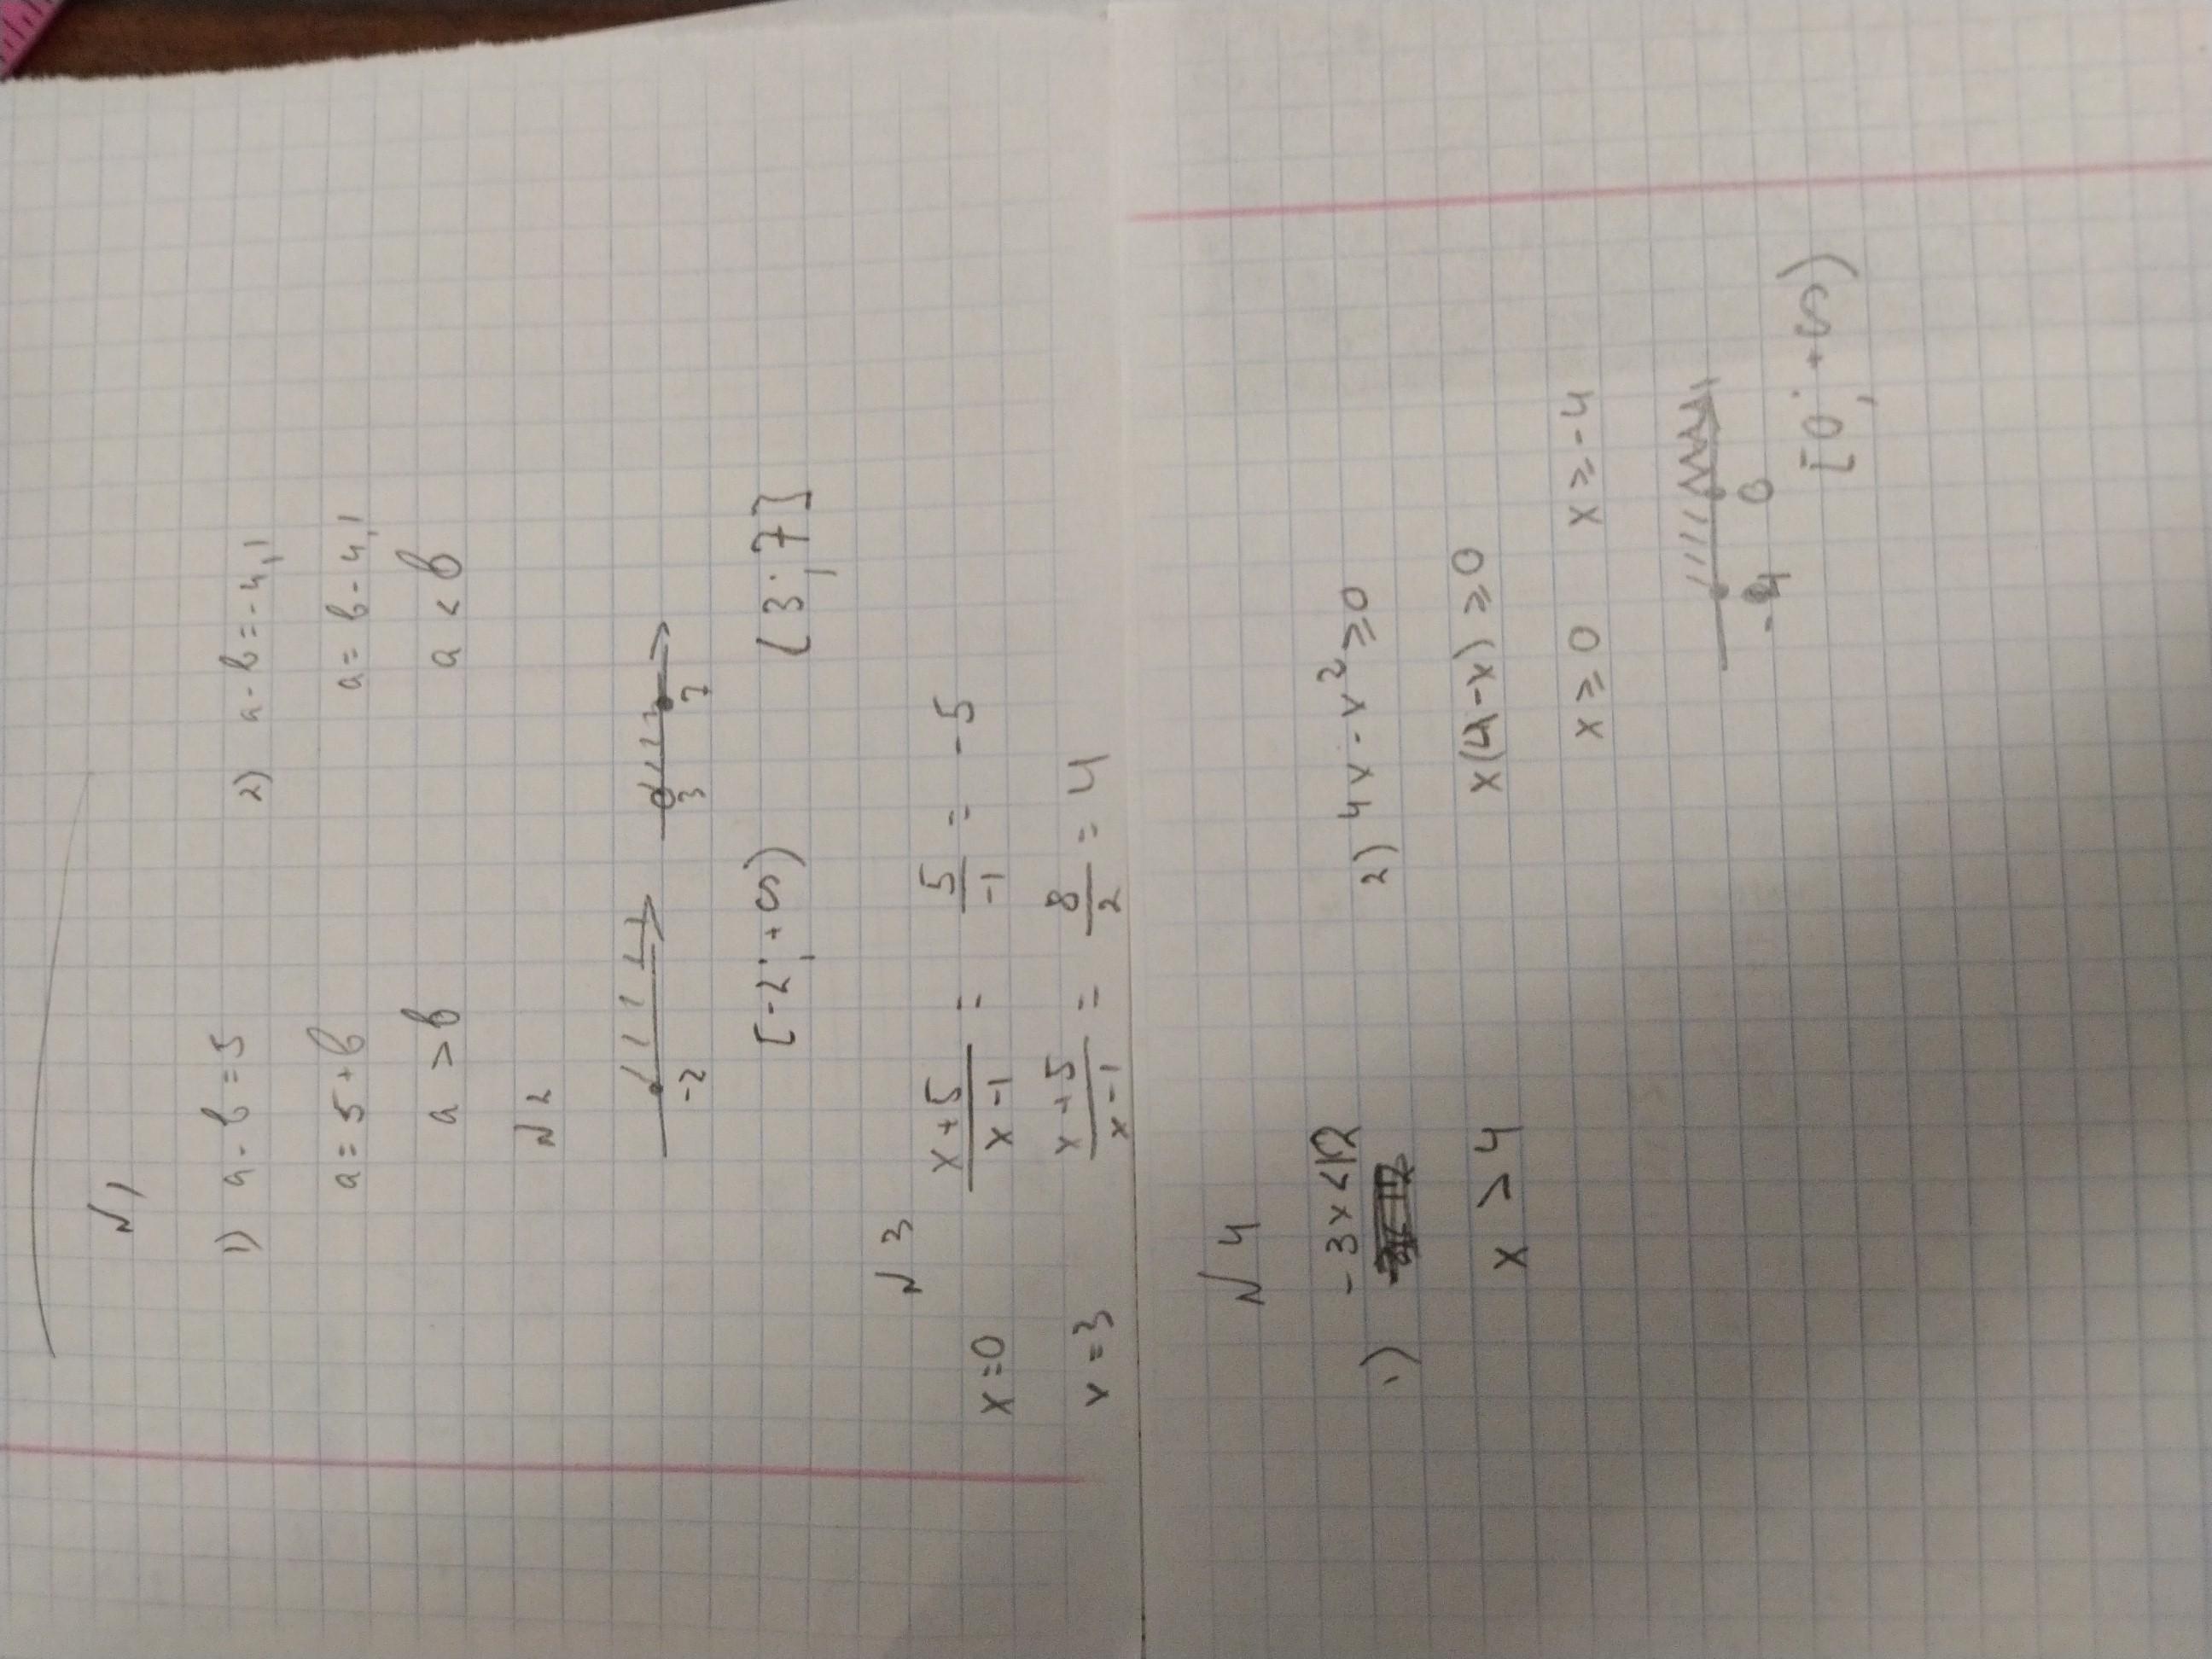 №1
1) a - b = 5 2) a - b = -4,1
a = 5 + b a = b - 4,1
a > b a < b
№2
-2 3 7
[-2; +∞) (3; 7]
№3
x=0 x+5/x-1 = 5/-1 = -5
x=3 x+5/x-1 = 8/2 = 4
№4
1) -3x<12 2) 4x - x² ≥ 0
x > 4 x(4-x) ≥ 0
x ≥ 0 x ≥ -4
-4 0
[0; +∞)